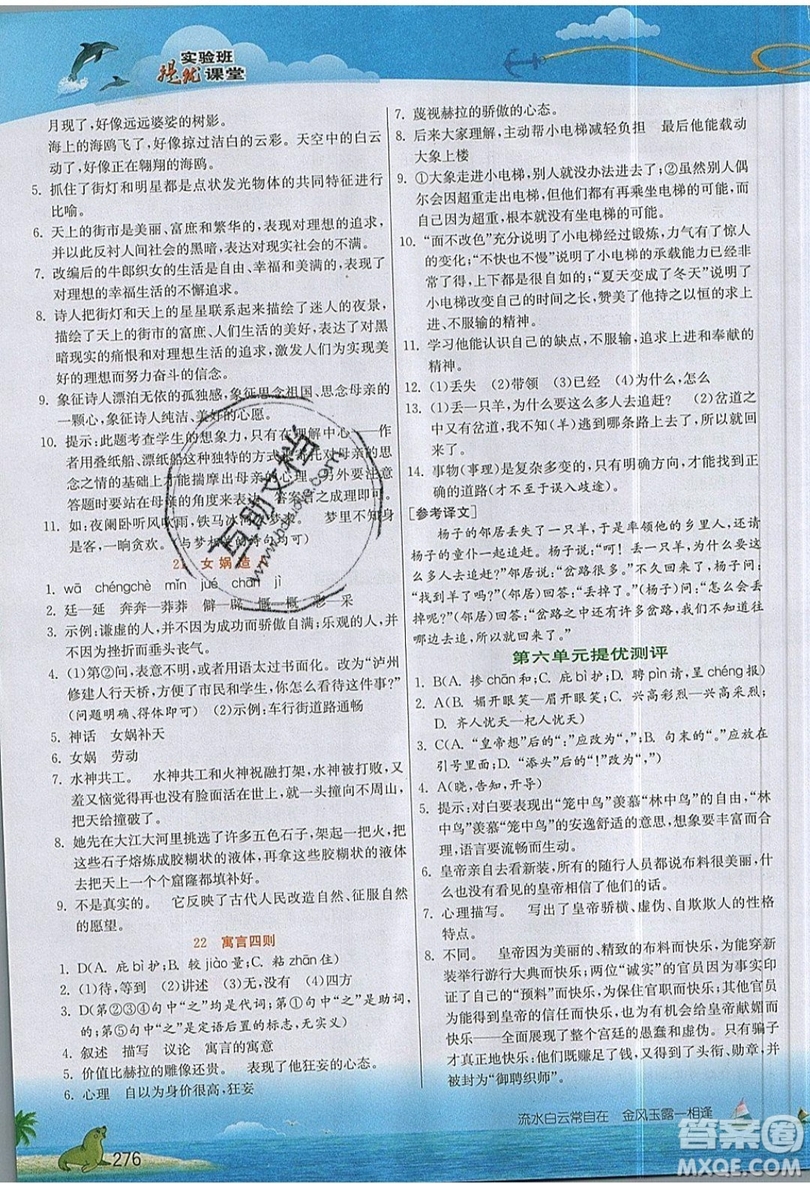 实验班
提优课堂
月现了，好像远远婆娑的树影。
海上的海鸥飞了，好像掠过洁白的云彩。天空中的白云
动了，好像正在翱翔的海鸥。
5. 抓住了街灯和明星都是点状发光物体的共同特征进行
比喻。
6. 天上的街市是美丽、富庶和繁华的，表现对理想的追求，
并以此反衬人间社会的黑暗，表达对现实社会的不满。
7. 改编后的牛郎织女的生活是自由、幸福和美满的，表现了
对理想的幸福生活的不懈追求。
8. 诗人把街灯和天上的星星联系起来描绘了迷人的夜景，
描绘了天上的街市的富庶、人们生活的美好，表达了对黑
暗现实的痛恨和对理想生活的追求，激发了人们为实现
美好而努力奋斗的信念。
9. 象征诗人漂泊无依的孤独感，象征思念母亲、思念母亲的
一颗心，象征诗人纯洁、美好的心愿。
10. 提示：此题考查学生的想象力，只有在理解中心——作
者用叠纸船、漂纸船这种独特的方式来寄托对母亲的思
念之情的基础上才能揣摩出母亲的心理。另外要注意
答题时要站在母亲的角度来表达，答案言之成理即可。
11. 如：夜阑卧听风吹雨，铁马冰河入梦来。 梦里不知身
是客，一晌贪欢。(与梦相关的诗句均可)
21 女娲造人
1. wā chéngchè mǐn jué chān jì
2. 廷—延 奔奔—莽莽 僻—辟 慨—概 彩 采
3. 示例：谦虚的人，并不因为成功而骄傲自满；乐观的人，并
不因为挫折而垂头丧气。
4. (1)第②问，表达不当，或者用语太过书面化。改为“泸州
修建人行天桥，方便市民出行，你怎么看待这件事？”
(问题明确、得体即可) (2)示例：车行街道路通畅
5. 神话 女娲补天
6. 女娲 劳动
7. 水神共工。 水神共工和火神祝融打架，水神被打败，又
羞又恼，觉得再也没有脸面活在世上，就一头撞向不周山，
把天给撞破了。
8. 她先在大江大河里挑选了许多五色石子，架起一把火，把
这些石子熔炼成胶糊状的液体，再拿这些胶糊状的液体
去把天上的一个个窟窿填补好。
9. 不是真实的。 它反映了古代人民改造自然、征服自然
的愿望。
22 寓言四则
1. D(A. 庇bì护；B. 较jiào量；C. 粘zhān住)
2. (1)待，等到 (2)讲述 (3)无，没有 (4)四方
3. D(第②③④句中“之”均是代词；第①句中“之”是助词，
的，第⑤句中“之”是定语后置的标志，无实义)
4. 叙述 描写 议论 寓言的寓意
5. 价值比赫拉的雕像还贵。 表现了他狂妄的心态。
6. 心理 自以为身价很高，狂妄
7. 蔑视赫拉的骄傲的心态。
8. 后来大家理解，主动帮小电梯减轻负担 最后他能载动
大象上楼
9. ①大象走进小电梯，别人就没办法进去了；②虽然别人偶
尔会因超重走出电梯，但仍然有再乘坐电梯的可能，而
自己因为超重，根本没有坐电梯的可能。
10. “面不改色”充分说明了小电梯经过锻炼，力气有了惊人
的变化；“不快也不慢”说明了小电梯的承载能力已经非
常了得，上下都是很自如的；“夏天变成了冬天”说明了
小电梯改变自己的时间之长，赞美了他持之以恒的求上
进、不服输的精神。
11. 学习他能认识自己的缺点，不服输，追求上进和奉献的
精神。
12. (1)丢失 (2)带领 (3)已经 (4)为什么，怎么
13. (1)丢一只羊，为什么要这么多人去追赶？ (2)岔道之
中又有岔道，我不知(羊)逃到哪条路上去了，所以就
回来了。
14. 事物(事理)是复杂多变的，只有明确方向，才能找到正
确的道路(才不至于误入歧途)。
[参考译文]
杨子的邻居丢失了一只羊，于是率领他的乡里人，还请
杨子的童仆一起追赶。杨子说：“呵！丢失一只羊，为什么要
这么多人去追赶？”邻居说：“岔路很多。”不久回来，杨子问：
“找到羊了吗？”(邻居)回答：“丢掉了。”(杨子)问：“怎么会丢
掉呢？”(邻居)回答：“岔路之中还有许多岔路，我们不知道往
哪边去追，所以就回来了。”
第六单元提优测评
1. B(A. 掺chān和；C. 庇bì护；D. 聘pìn请，呈chéng报)
2. A(B. 媚开眼笑—眉开眼笑；C. 兴高彩烈—兴高采烈；
D. 齐人忧天—杞人忧天)
3. C(A. “皇帝想”后的“：”应改为“，”；B. 句末的“。”应放在
引号里面；D. “添头”后的“！”改为“，”)
4. A(晓，告知，开导)
5. 提示：对白要表现出“笼中鸟”羡慕“林中鸟”的自由，“林
中鸟”羡慕“笼中鸟”的安逸舒适的意思，想象要丰富、合
理，语言要流畅而生动。
6. 皇帝亲自去看新装，所有的随行人员都说布料很美丽，一
些也没有看见的皇帝也随声附和了他们的话。
7. 心理描写。 写出了皇帝骄横、虚伪、自欺欺人的性格
特点。
8. 不同。 皇帝因为美丽的、精致的布料而快乐，为能穿新
装举行游行大典而快乐；两位“诚实”的官员因为得到证
实了自己的“预料”而快乐，因为又有可以炫耀的资本而
得到皇帝的信任而快乐，也为有机会给皇帝献媚而
快乐，同时也揭示了整个宫廷的愚蠢和虚伪。只有骗子
的快乐是实在的：既赚足了钱财，又得到了头衔、勋章，并
被封为“御聘织师”。
流水白云常自在 金风玉露一相逢
276
互助文档
答案圈
MXQE.COM